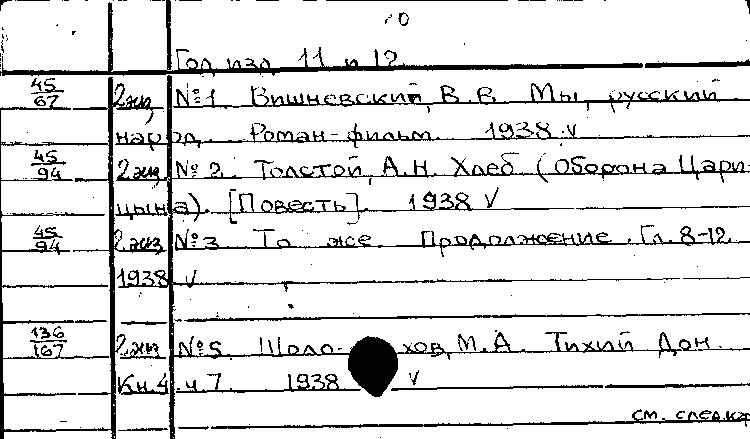 Год изд. 11 и 12
45/67 2 экз. №1. Вишневский, В.В. Мы, русский
народ. Роман-фильм. 1938 V
45/94 2 экз. №2. Толстой, А.Н. Хлеб (Оборона Цари-
цына). [Повесть]. 1938 V
45/94 2 экз. №3 То же. Продолжение. Гл. 8-12.
1938 V
136/167 2 экз. №5. Шоло- хов, М.А. Тихий Дон.
Кн.4. ч.7. 1938 V
см. след. кт